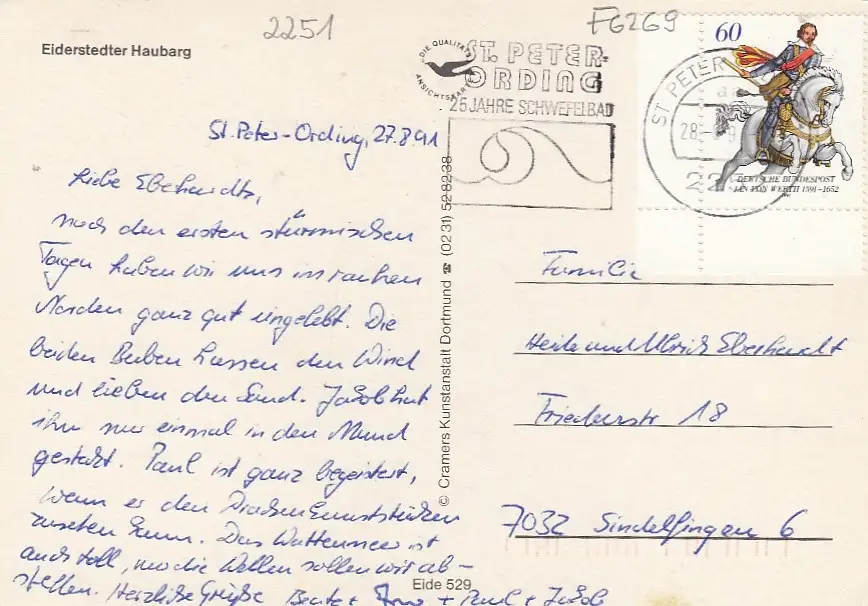 2251
F6269
Eiderstedter Haubarg
DIE QUALITÄTS
ANSICHTSKARTE
ST. PETER-
ORDING
25 JAHRE SCHWEFELBAD
ST PETER
28-
60
DEUTSCHE BUNDESPOST
JAN VON WERTH 1591-1652
St. Peter-Ording, 27.8.91
Liebe Eberhardts,
nach den ersten stürmischen
Tagen haben wir uns im rauhen
Norden ganz gut eingelebt. Die
beiden Buben hassen den Wind
und lieben den Sand. Jakob hat
ihn nur einmal in den Mund
gesteckt. Paul ist ganz begeistert,
wenn er den Drachenkunststücken
zusehen kann. Das Wattenmeer ist
auch toll, nur die Wellen sollen wir ab-
stellen. Herzliche Grüße Beate + + Paul + Jakob
© Cramers Kunstanstalt Dortmund ☎ (02 31) 52 82 38
Eide 529
Familie
Heide und Ulrich Eberhardt
Friederstr 18
7032 Sindelfingen 6